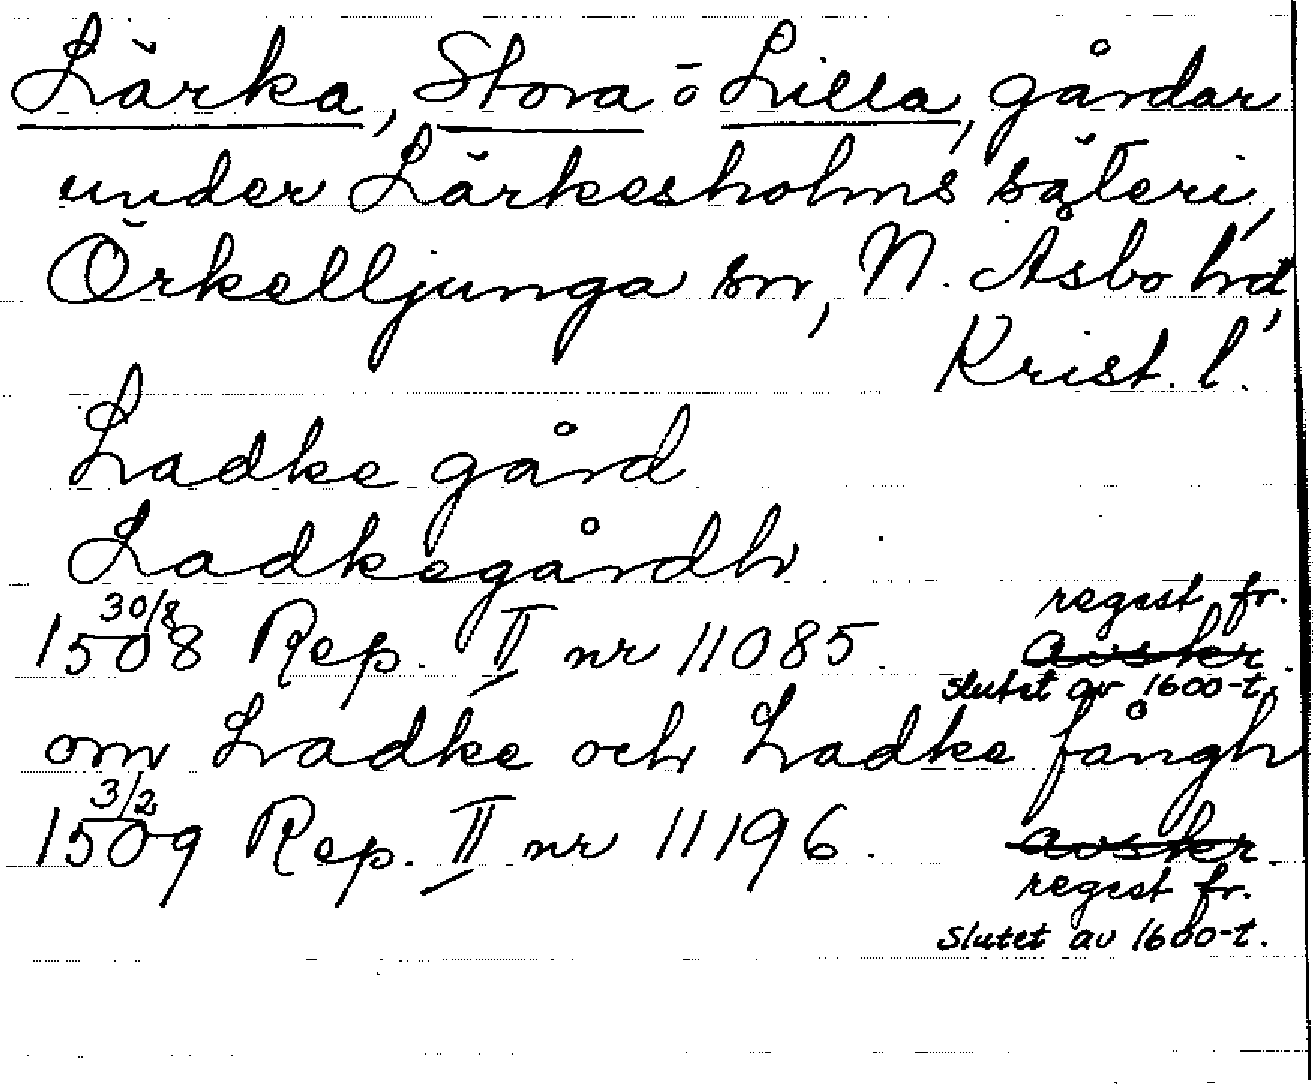 Lärka, Stora o Lilla, gårdar
under Lärkesholms säteri,
Örkelljunga sn, N. Åsbo hd,
Krist. l.
Ladke gård
Ladkegårdh
30/8 1508 Rep. II nr 11085. regest fr.
avskr.
slutet av 1600-t.
om Ladke och Ladke fångh
3/2 1509 Rep. II nr 11196. avskr.
regest fr.
slutet av 1600-t.